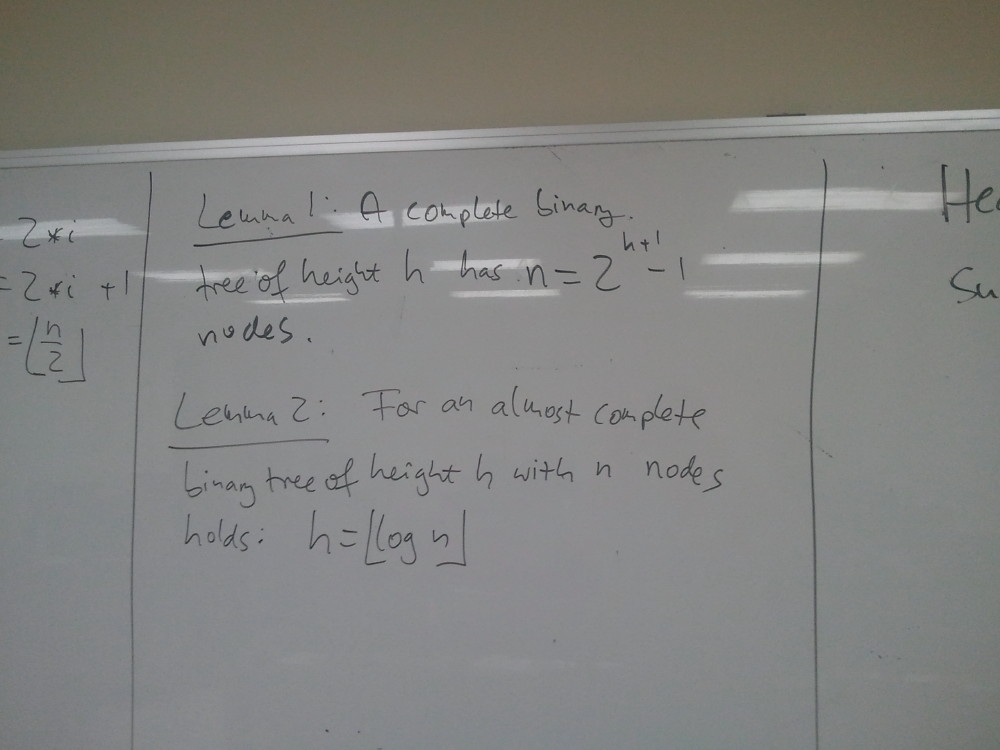 2*i
= 2*i +1
= ⌊n/2⌋
Lemma 1: A complete binary
tree of height h has n = 2^{h+1} - 1
nodes.
Lemma 2: For an almost complete
binary tree of height h with n nodes
holds: h = ⌊log n⌋
Hea
Su